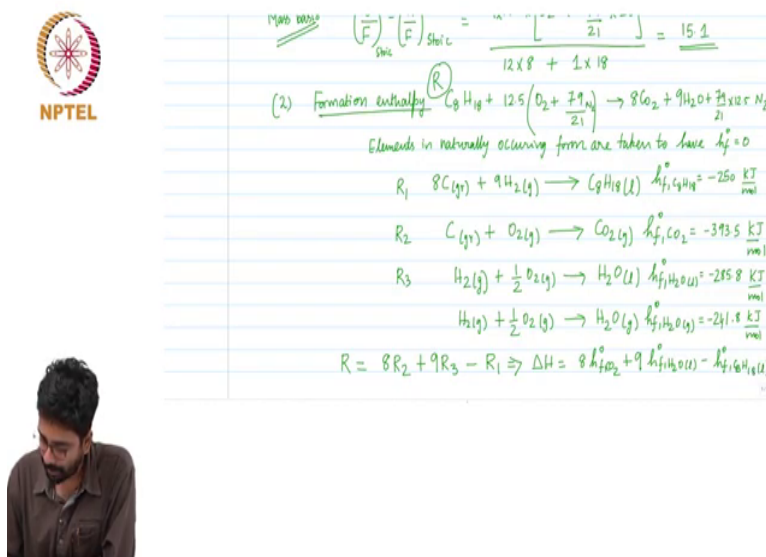 NPTEL
Mass basis (A/F)stoic = (A/F)stoic = / 12x8 + 1x18 = 15.1
(2) Formation enthalpy (R) C8H18 + 12.5 (O2 + 79/21 N2) → 8CO2 + 9H2O + 79/21 x 12.5 N2
Elements in naturally occuring form are taken to have hf° = 0
R1 8C(gr) + 9H2(g) → C8H18(l) hf,C8H18° = -250 kJ/mol
R2 C(gr) + O2(g) → CO2(g) hf,CO2° = -393.5 kJ/mol
R3 H2(g) + 1/2 O2(g) → H2O(l) hf,H2O(l)° = -285.8 kJ/mol
H2(g) + 1/2 O2(g) → H2O(g) hf,H2O(g)° = -241.8 kJ/mol
R = 8R2 + 9R3 - R1 ⇒ ΔH = 8 hf,CO2° + 9 hf,H2O(l)° - hf,C8H18(l)°